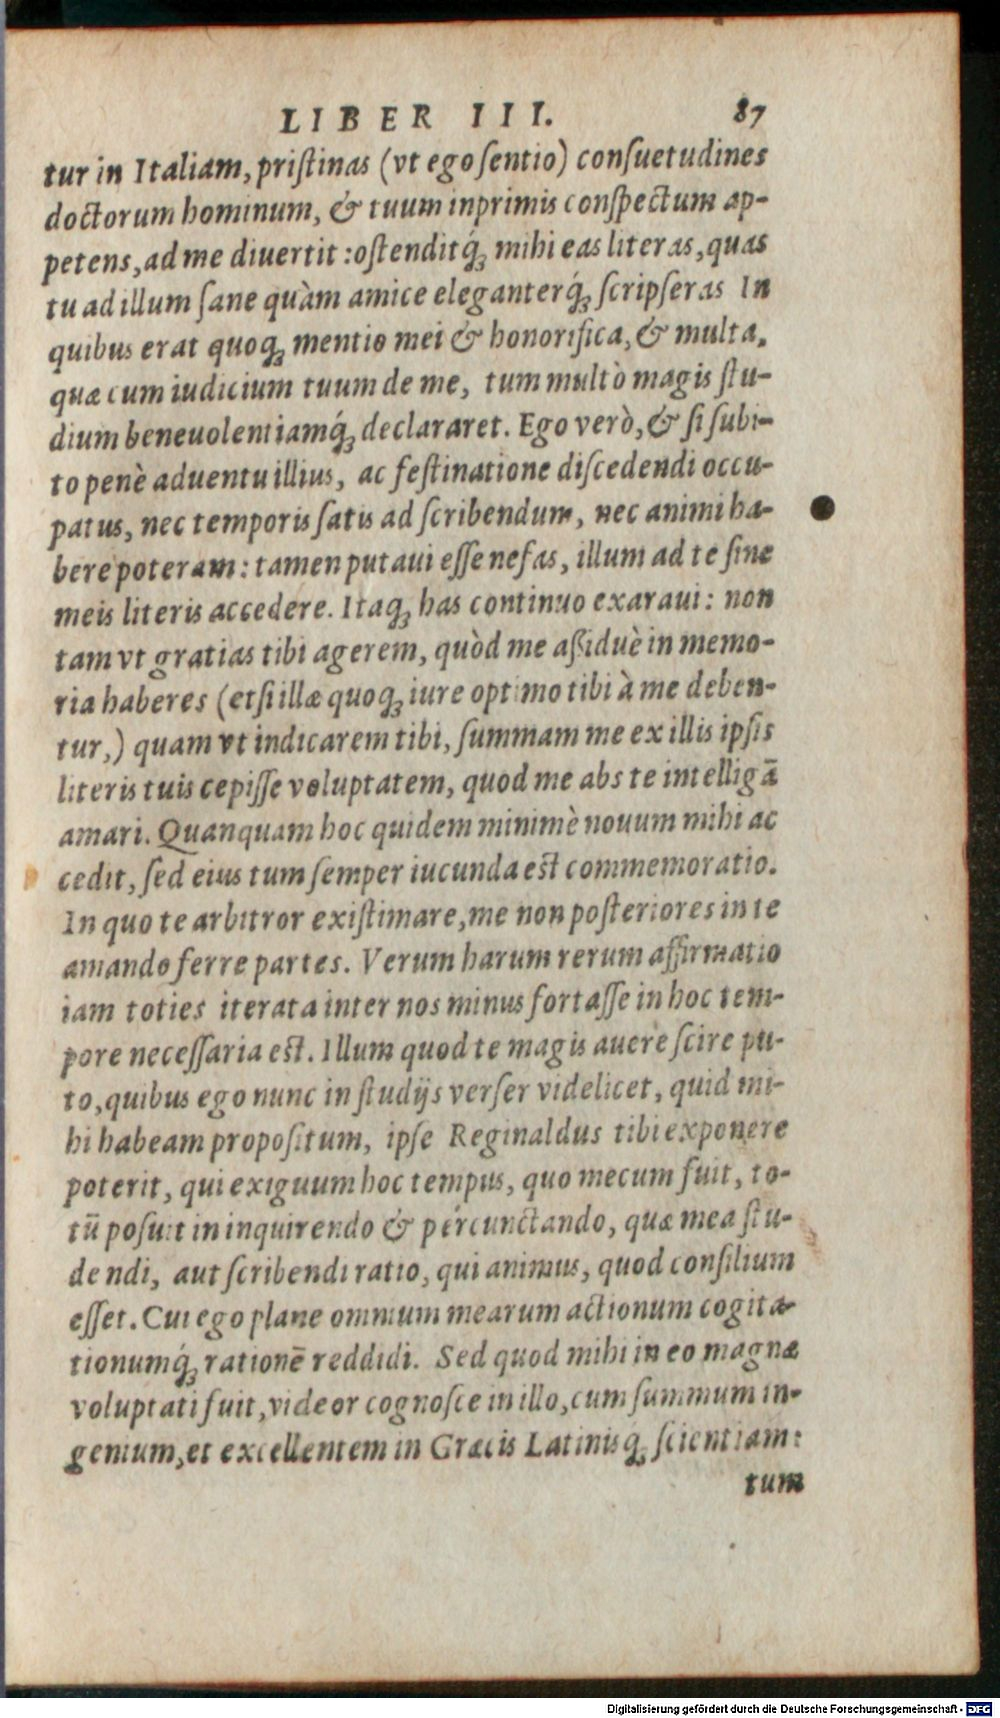 LIBER III. 87
tur in Italiam, priſtinas (vt ego ſentio) conſuetudines
doctorum hominum, & tuum inprimis conſpectum ap-
petens, ad me diuertit: oſtenditq́ꝫ mihi eas literas, quas
tu ad illum ſane quàm amice eleganterq́ꝫ ſcripſeras In
quibus erat quoqꝫ mentio mei & honorifica, & multa.
quæ cum iudicium tuum de me, tum multò magis ſtu-
dium beneuolentiamq́ꝫ declararet. Ego verò, & ſi ſubi-
to penè aduentu illius, ac feſtinatione diſcedendi occu-
patus, nec temporis ſatis ad ſcribendum, nec animi ha-
bere poteram: tamen putaui eſſe nefas, illum ad te ſine
meis literis accedere. Itaqꝫ has continuo exaraui: non
tam vt gratias tibi agerem, quòd me aſſiduè in memo-
ria haberes (etſi illæ quoqꝫ iure optimo tibi à me deben-
tur,) quam vt indicarem tibi, ſummam me ex illis ipſis
literis tuis cepiſſe voluptatem, quod me abs te intelligā
amari. Quanquam hoc quidem minimè nouum mihi ac
cedit, ſed eius tum ſemper iucunda est commemoratio.
In quo te arbitror exiſtimare, me non poſteriores in te
amando ferre partes. Verum harum rerum affirmatio
iam toties iterata inter nos minus fortaſſe in hoc tem-
pore neceſſaria est. Illum quod te magis auere ſcire pu-
to, quibus ego nunc in ſtudijs verſer videlicet, quid mi-
hi habeam propoſitum, ipſe Reginaldus tibi exponere
poterit, qui exiguum hoc tempus, quo mecum fuit, to-
tū poſuit in inquirendo & percunctando, quæ mea ſtu-
dendi, aut ſcribendi ratio, qui animus, quod conſilium
eſſet. Cui ego plane omnium mearum actionum cogita-
tionumq́ꝫ rationē reddidi. Sed quod mihi in eo magnæ
voluptati fuit, videor cognoſce in illo, cum ſummum in-
genium, et excellentem in Græcis Latinisq́ꝫ ſcientiam:
tum
Digitalisierung gefördert durch die Deutsche Forschungsgemeinschaft - DFG